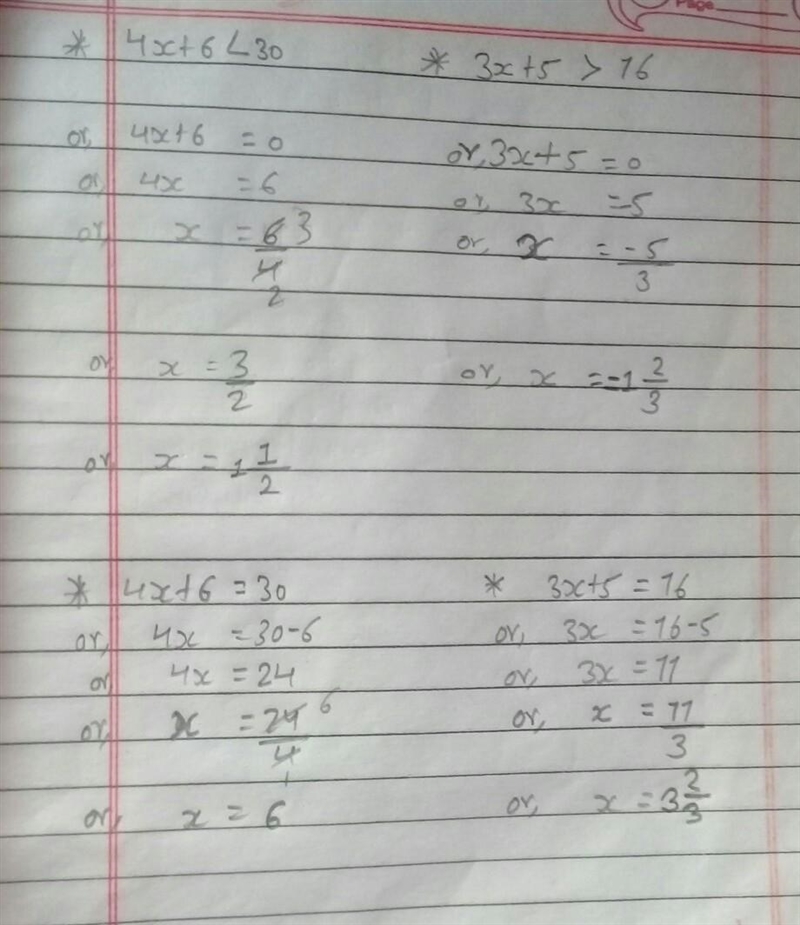 Page
* 4x+6 < 30
or, 4x+6 = 0
or, 4x = 6
or, x = 6/4 3 2
or x = 3/2
or x = 1 1/2
* 3x+5 > 16
or, 3x+5 = 0
or, 3x = -5
or, x = -5/3
or, x = -1 2/3
* 4x+6 = 30
or, 4x = 30-6
or 4x = 24
or, x = 24/4 6 1
or, x = 6
* 3x+5 = 16
or, 3x = 16-5
or, 3x = 11
or, x = 11/3
or, x = 3 2/3